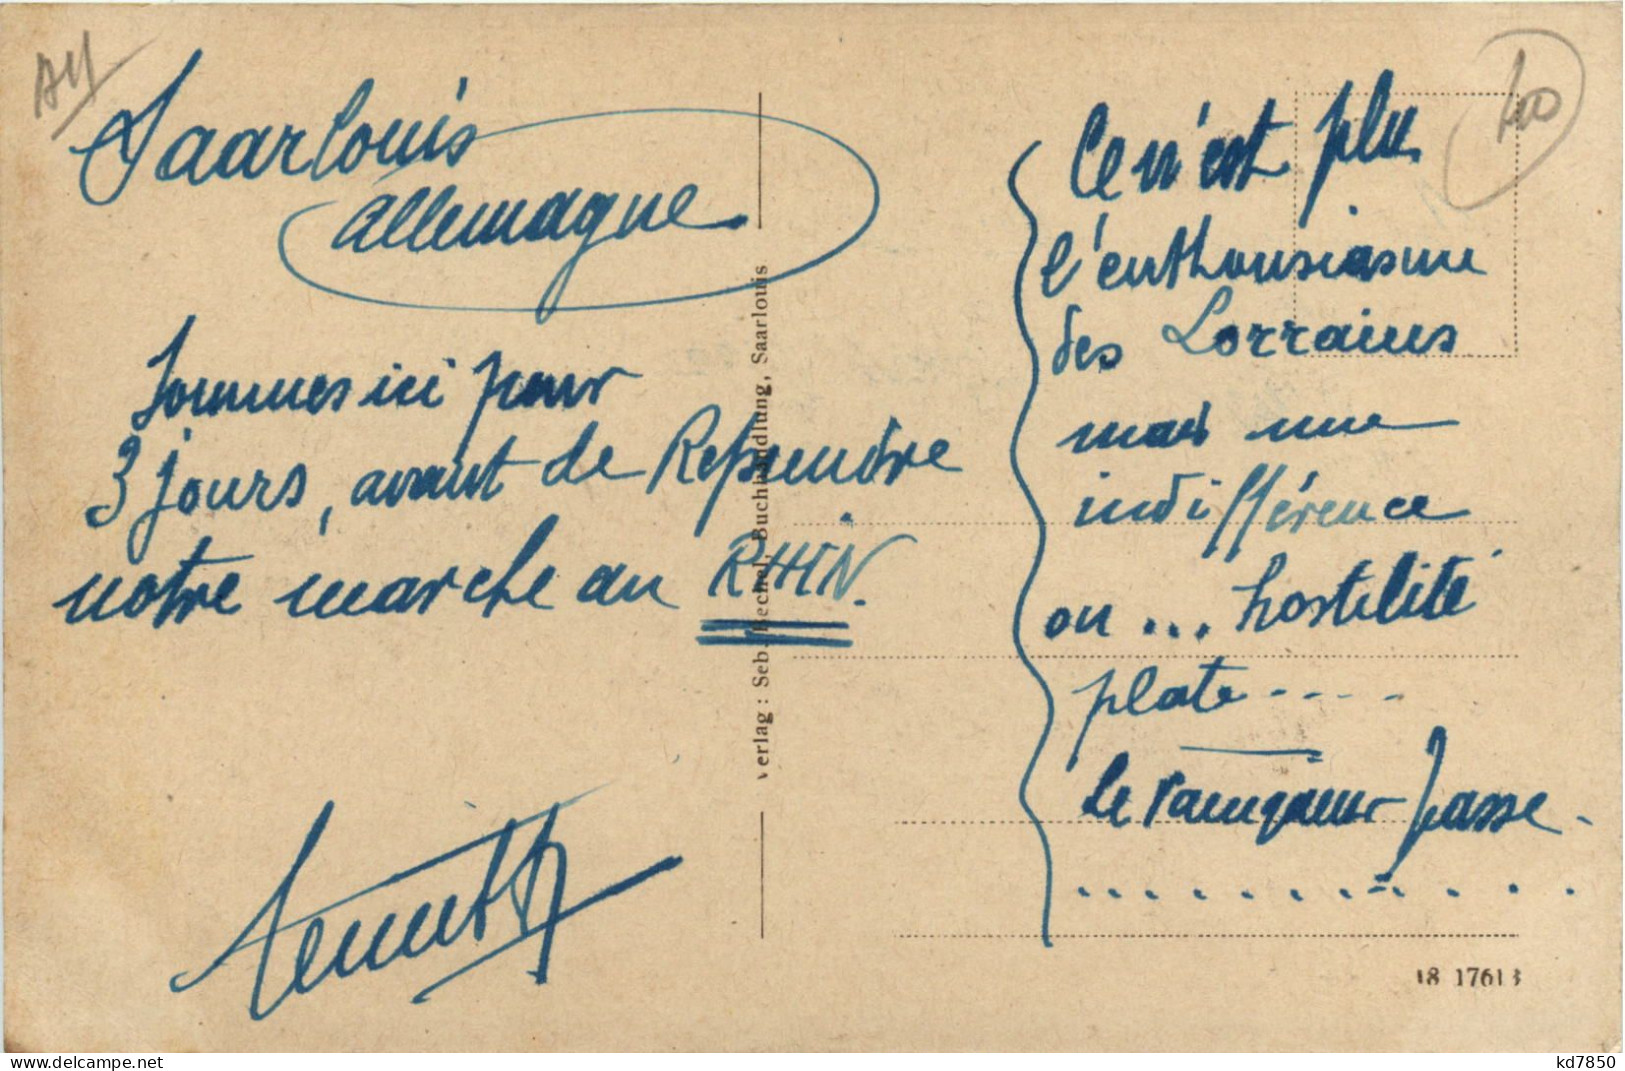 Saarlouis
allemagne
Sommes ici pour
3 jours, avant de Reprendre
notre marche au RHIN.
Ce n'est plus
l'enthousiasme
des Lorraines
mais une
indifférence
ou ... hostilité
plate - - - -
Le vainqueur passe.
. . . . . . . . . . . .
Verlag: Seb. Bechel, Buchhandlung, Saarlouis
18 17613
www.delcampe.net
kd7850